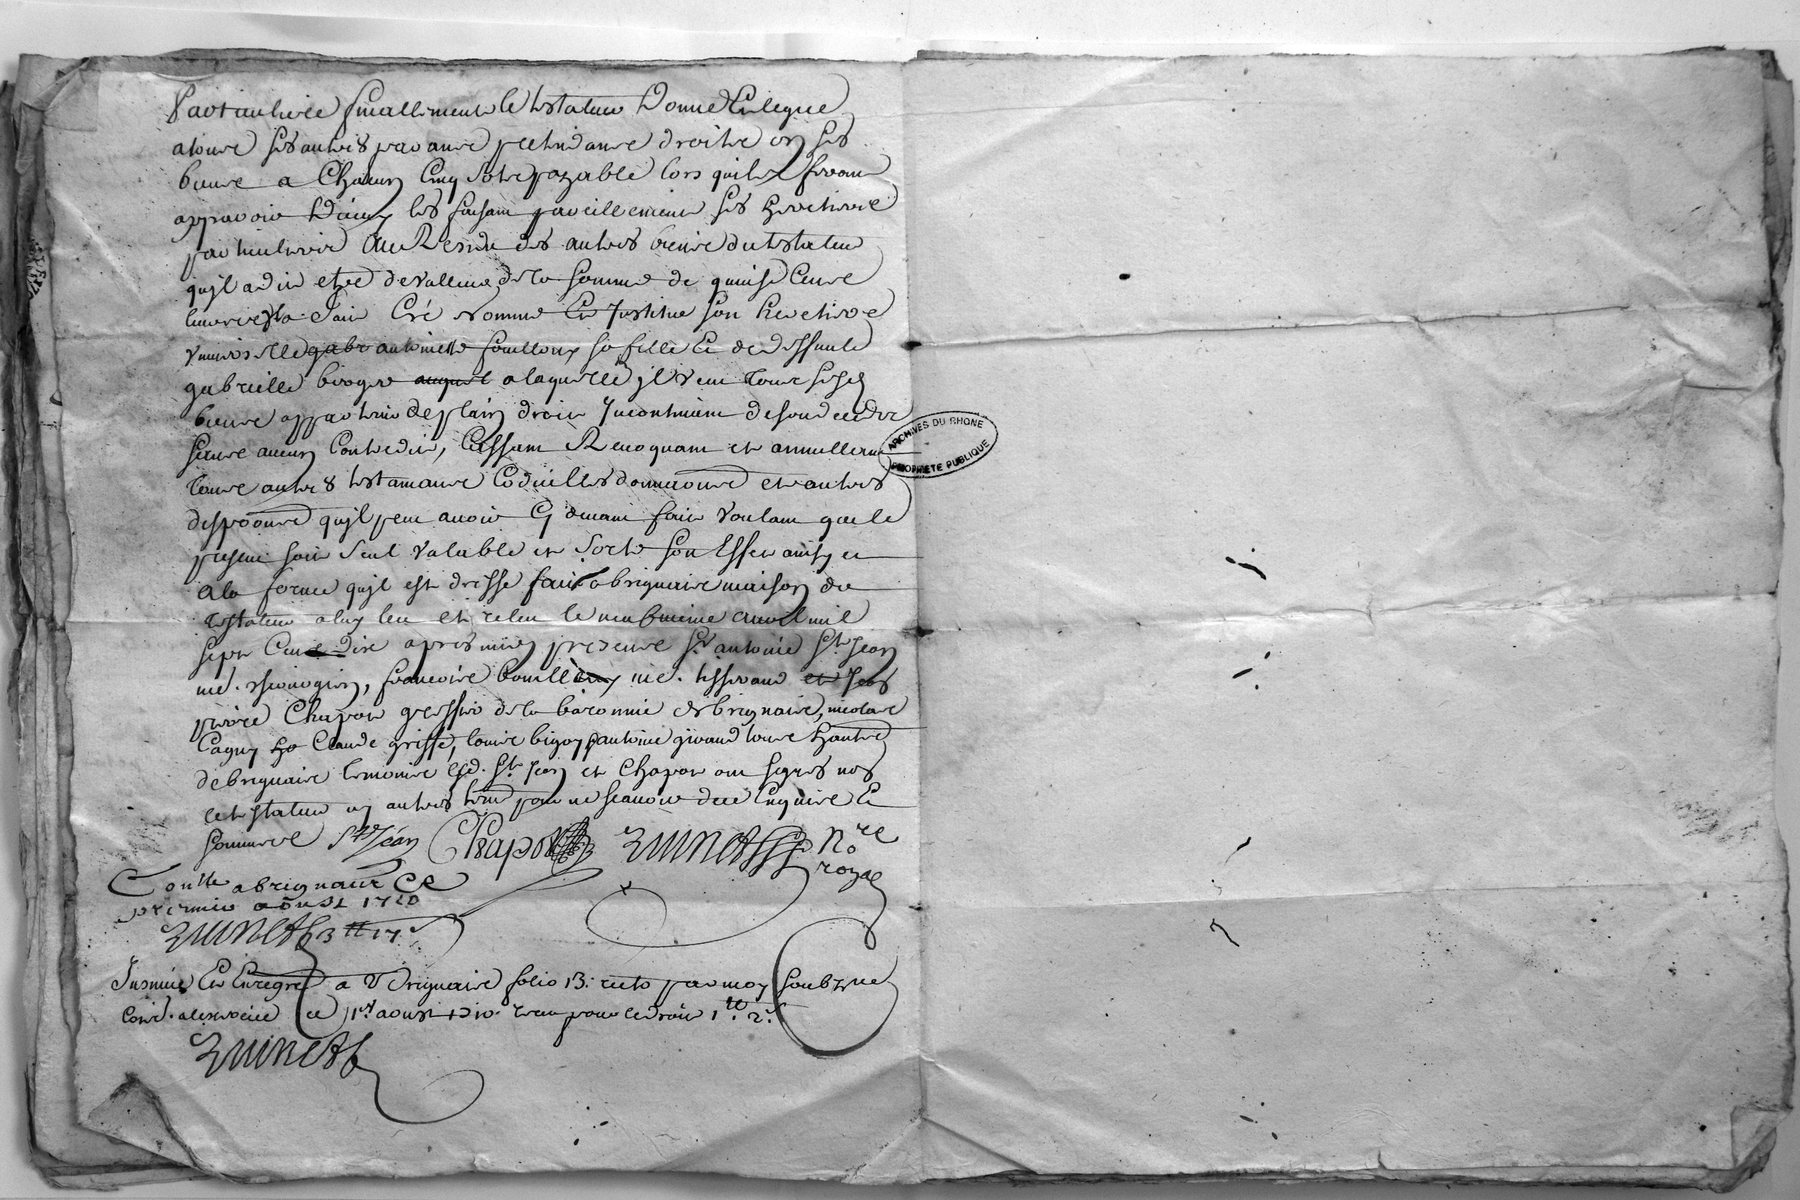 particuliere finallement le testateur donne et legue
a tous ses autres parans pretandans droits en ses
biens a Chacun Cinq sols payable lors quils feront
apparoir d'iceux les faisant pareillement ses heretiers
particuliers Au Residu des autres biens du testateur
qu'il a dit etre de valleur de la somme de quinse Cens
livres la fait Cré nomme Et Institue son heretiere
universelle gabr antoinette fouilloux sa fille Et de deffunte
gabrielle biroger a laquelle jl veut tous sesd
biens appartenir de plain droit Jncontinant desondecedz
sans aucun Contredit, Cassant Revoquant et annullant
tous autres testamans Codicilles donnaons et autres
dispoons qujl peut avoir Cy devant fait voulant que le
present soit seul valable et sorte son Effet ainsy et
a la forme qujl est dressé fait a brignais maison du
testateur a luy leu et releu le neufvieme avril mil
sept Cens Dix apres midy presens Sr antoine St Jean
me. , francois me. tisserand et Jean
pierre Chapot greffier de la baronnie de brignais, nicolas
Cagny Claude griffe, louis bigoy antoine giraud tous habtes
de brignais temoins lesd. St Jean et Chapot ont signes nos
le testateur ny autres tems pour ne scavoir de ce Enquis Et
sommes St Jean Chapot Nore
royal
Conlle a brignais Ce
premier aoust 1710
3 tt 17 s
Jnsinué Et Enregré a Brignais folio 13. recto par moy Soubzne
Comis. alexercice ce 1er aoust 1710. receu pour le droit 1 tt 2 s
ARCHIVES DU RHONE
PROPRIETE PUBLIQUE